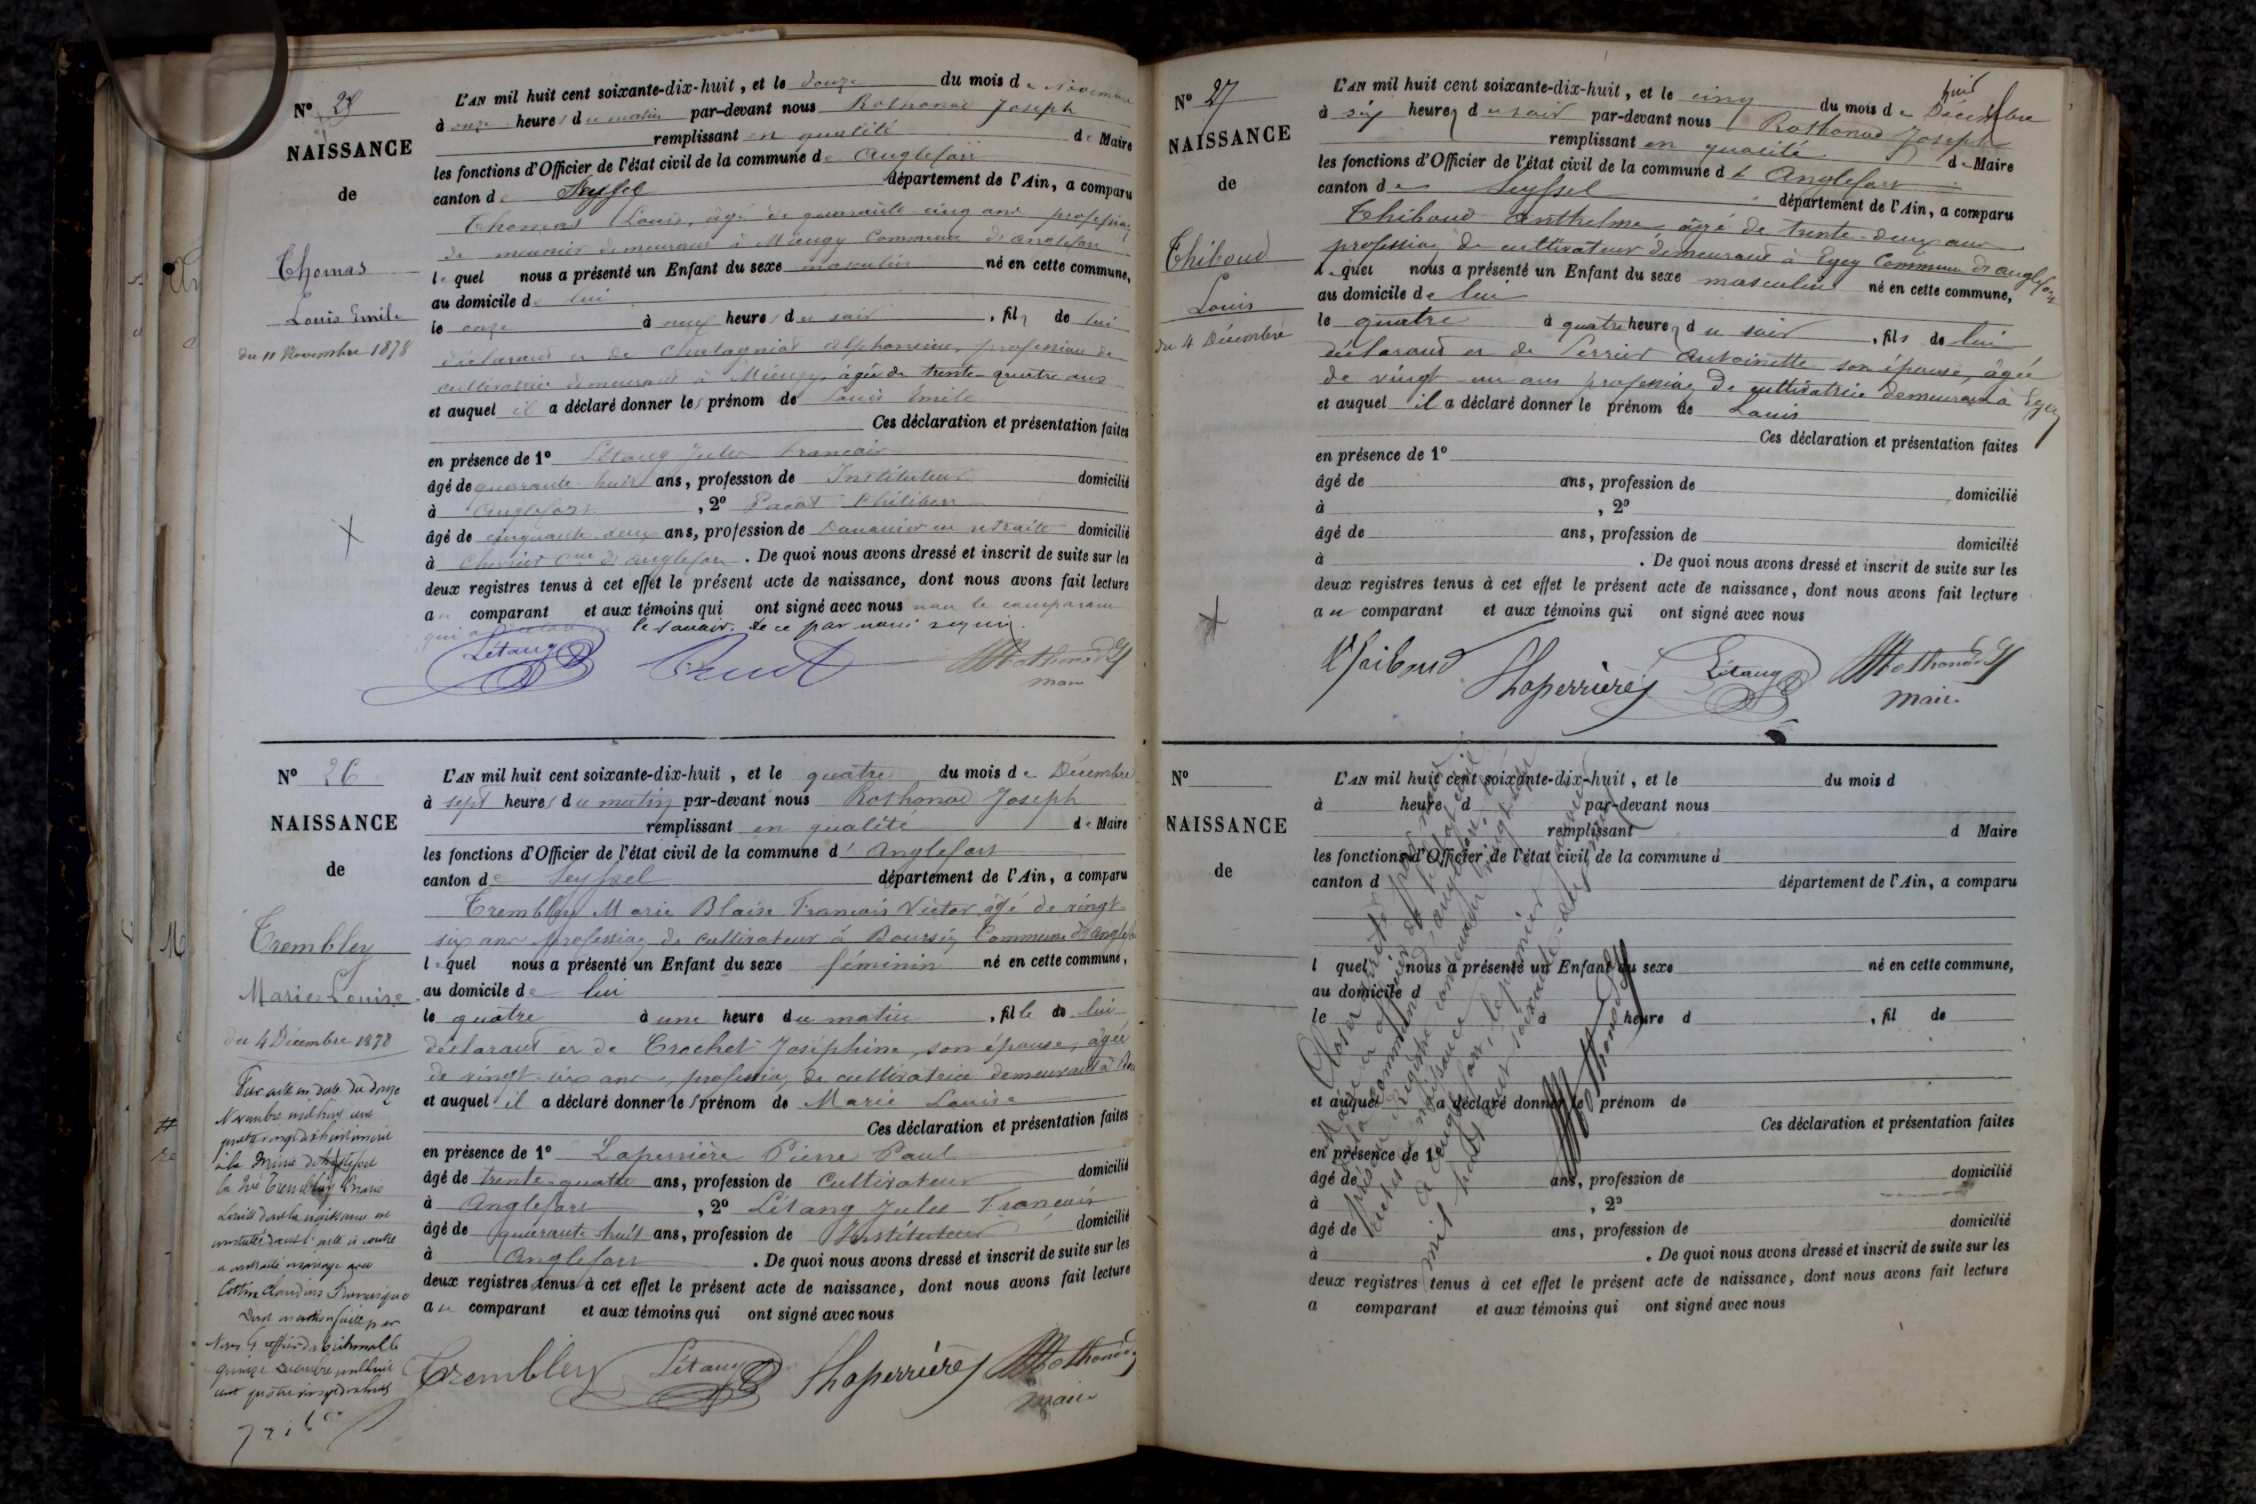 Nº 25
NAISSANCE
de
Thomas
Louis Emile
du 11 Novembre 1878
L'AN mil huit cent soixante-dix-huit, et le douze du mois de Novembre
à onze heures du matin par-devant nous Rothonod Joseph
remplissant en qualité de Maire
les fonctions d'Officier de l'état civil de la commune d Anglefort
canton de Seyssel département de l'Ain, a comparu
Thomas Louis, âgé de quarante cinq ans profession
de demeurant à Mieugy Commune d'anglefort
lequel nous a présenté un Enfant du sexe masculin né en cette commune,
au domicile de lui
le onze à neuf heures du soir, fils de lui
déclarant et de Chatagnat Alphonsine, profession de
cultivatrice demeurant à Mieugy, âgée de trente-quatre ans
et auquel il a déclaré donner les prénom de Louis Emile
Ces déclaration et présentation faites
en présence de 1º Létang Jules Francois
âgé de quarante huit ans, profession de Instituteur domicilié
à Anglefort, 2º Philibert
âgé de cinquante deux ans, profession de Douanier en retraite domicilié
à cne d'anglefort. De quoi nous avons dressé et inscrit de suite sur les
deux registres tenus à cet effet le présent acte de naissance, dont nous avons fait lecture
au comparant et aux témoins qui ont signé avec nous non le comparant
qui a le savoir. de ce par nous requis.
Létang Rothonod
maire
Nº 26
NAISSANCE
de
Trembley
Marie Louise
du 4 Décembre 1878
Par acte en date du douze
Novembre mil huit cent
quatre vingt dix huit inscrit
à la Mairie d'Anglefort
la dite Trembley Marie
Louise dont la naissance est
constatée dans l'acte ci contre
a contracté mariage avec
Claudius
Dont mention faite par
Nous greffier du tribunal le
quinze Décembre mil huit
cent quatre vingt dix huit
L'AN mil huit cent soixante-dix-huit, et le quatre du mois de Décembre
à sept heures du matin par-devant nous Rothonod Joseph
remplissant en qualité de Maire
les fonctions d'Officier de l'état civil de la commune d' Anglefort
canton de Seyssel département de l'Ain, a comparu
Trembley Marie Blaise Francois Victor âgé de vingt
six ans profession de cultivateur à Boursin Commune d'Anglefort
lequel nous a présenté un Enfant du sexe féminin né en cette commune,
au domicile de lui
le quatre à une heure du matin, fille de lui
déclarant et de Crochet Joséphine, son épouse, âgée
de vingt six ans, profession de cultivatrice demeurant à
et auquel il a déclaré donner les prénom de Marie Louise
Ces déclaration et présentation faites
en présence de 1º Laperrière Pierre Paul
âgé de trente-quatre ans, profession de Cultivateur domicilié
à Anglefort, 2º Létang Jules Francois
âgé de quarante huit ans, profession de Instituteur domicilié
à Anglefort. De quoi nous avons dressé et inscrit de suite sur les
deux registres tenus à cet effet le présent acte de naissance, dont nous avons fait lecture
au comparant et aux témoins qui ont signé avec nous
Trembley Létang Laperrière Rothonod
maire
Nº 27
NAISSANCE
de
Thiboud
Louis
du 4 Décembre
L'AN mil huit cent soixante-dix-huit, et le cinq du mois de Décembre
à six heures du soir par-devant nous Rothonod Joseph
remplissant en qualité de Maire
les fonctions d'Officier de l'état civil de la commune d' Anglefort
canton de Seyssel département de l'Ain, a comparu
Thiboud Anthelme âgé de trente-deux ans
profession de cultivateur demeurant à Eyey Commune d'anglefort
lequel nous a présenté un Enfant du sexe masculin né en cette commune,
au domicile de lui
le quatre à quatre heures du soir, fils de lui
déclarant et de Perrier Antoinette son épouse, âgée
de vingt-un ans profession de cultivatrice demeurant à Eyey
et auquel il a déclaré donner le prénom de Louis
Ces déclaration et présentation faites
en présence de 1º
âgé de ans, profession de domicilié
à , 2º
âgé de ans, profession de domicilié
à . De quoi nous avons dressé et inscrit de suite sur les
deux registres tenus à cet effet le présent acte de naissance, dont nous avons fait lecture
au comparant et aux témoins qui ont signé avec nous
Thiboud Laperrière Létang Rothonod
maire
Nº
NAISSANCE
de
L'AN mil huit cent soixante-dix-huit, et le du mois d
à heure d par-devant nous
remplissant d Maire
les fonctions d'Officier de l'état civil de la commune d
canton d département de l'Ain, a comparu
l quel nous a présenté un Enfant du sexe né en cette commune,
au domicile d
le à heure d , fil de
et auquel a déclaré donner le prénom de
Ces déclaration et présentation faites
en présence de 1º
âgé de ans, profession de domicilié
à , 2º
âgé de ans, profession de domicilié
à . De quoi nous avons dressé et inscrit de suite sur les
deux registres tenus à cet effet le présent acte de naissance, dont nous avons fait lecture
a comparant et aux témoins qui ont signé avec nous
Clos et arrêté par nous
Maire et officier de l'état civil
de la commune d'anglefort, le
présent Registre contenant vingt sept
actes de naissance
à Anglefort, le premier janvier
mil huit cent soixante-dix neuf
Rothonod